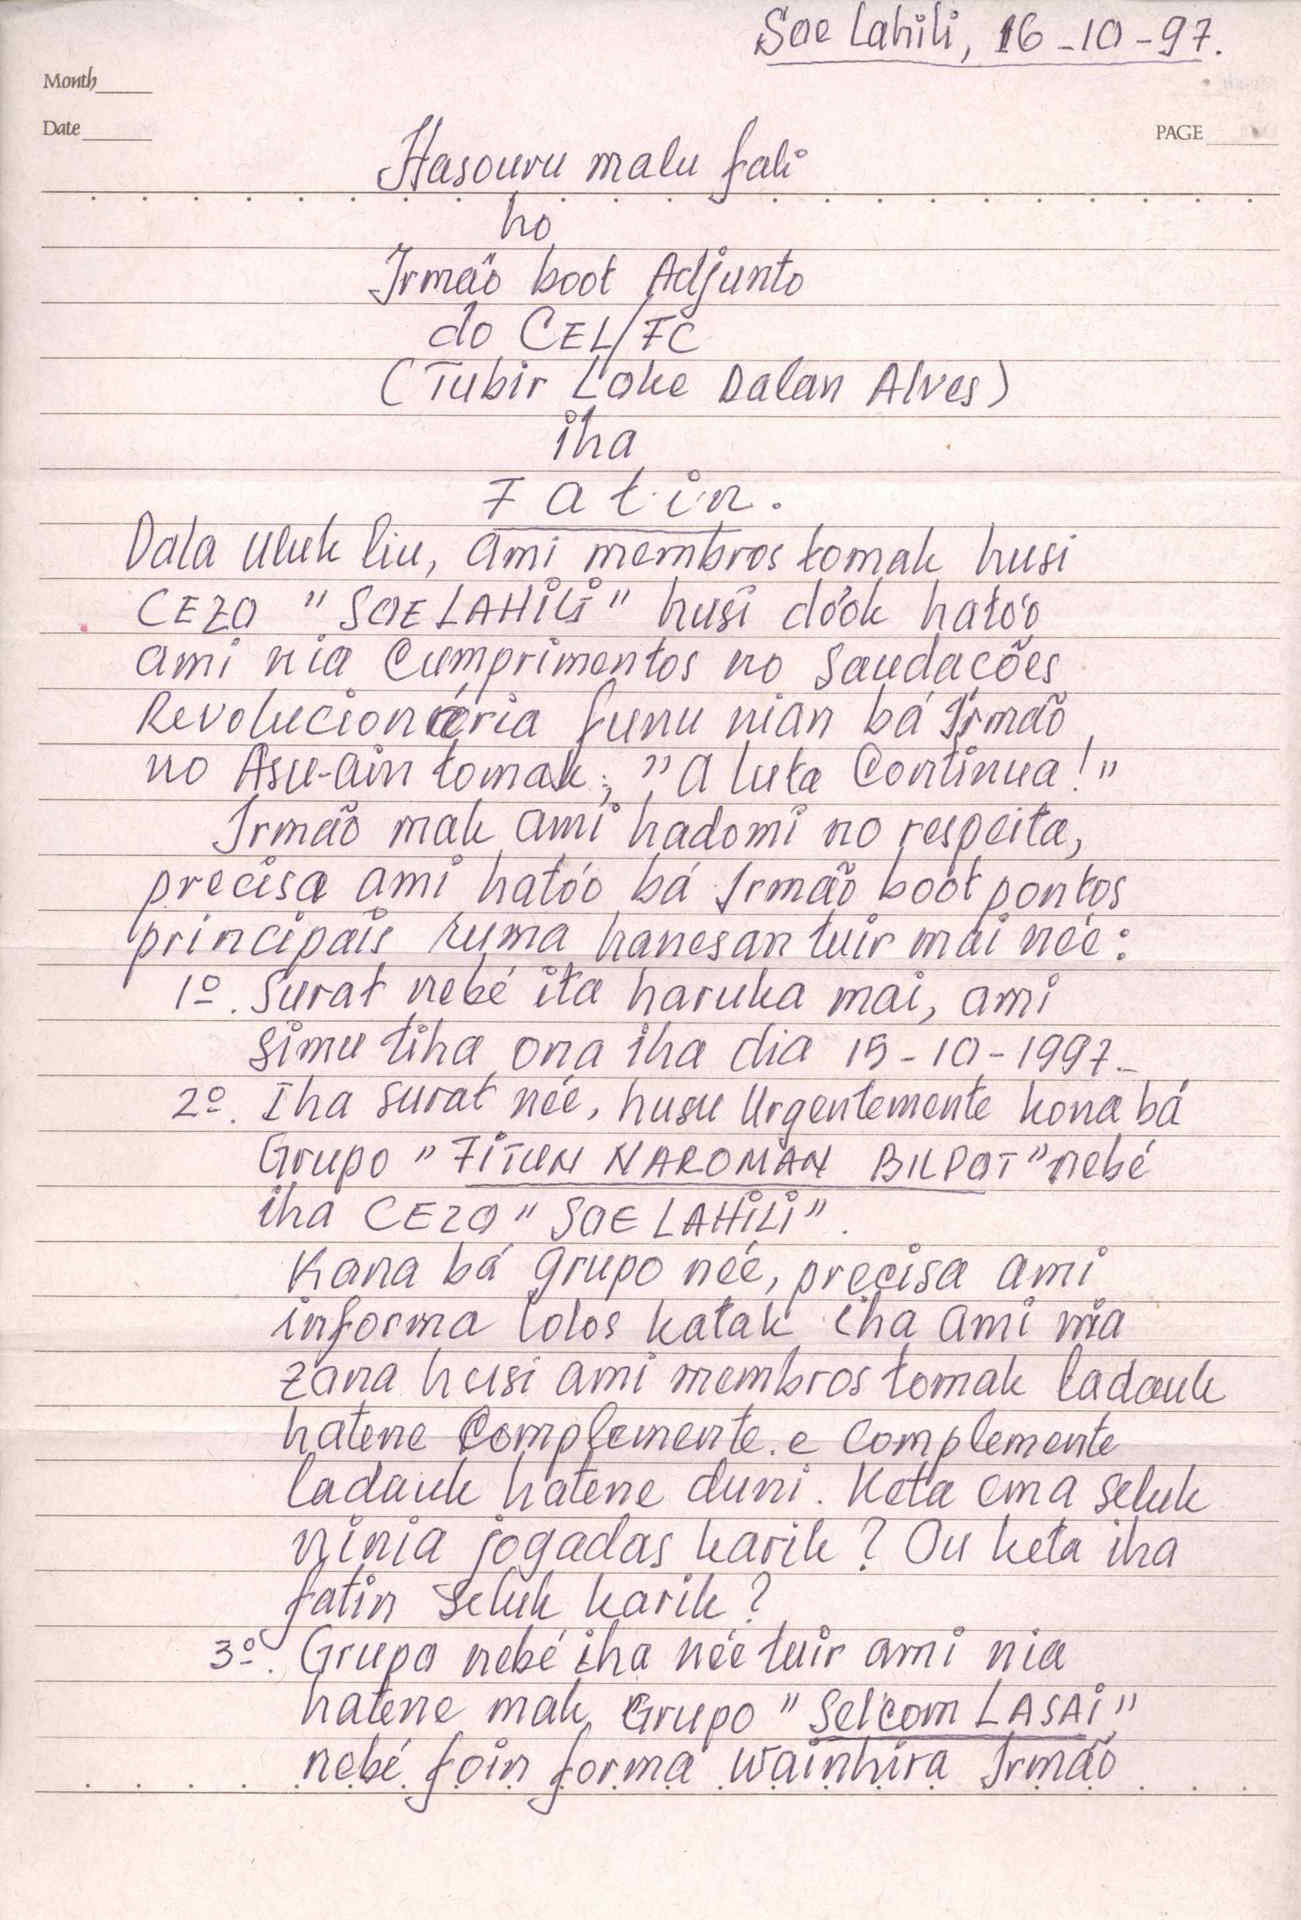 Sae Lahili, 16-10-97.
Month
Date
PAGE
Hasouru malu fali
ho
Irmão boot Adjunto
do CEL/FC
(Tubir Loke Dalan Alves)
iha
Fatin.
Dala uluk liu, ami membros tomak husi
CEZO "SAE LAHILI" husi dóok hatóo
ami nia Cumprimentos no Saudacões
Revolucionária funu nian bá Irmão
no Asu-ain tomak; "A luta Continua!"
Irmão mak ami hadomi no respeita,
precisa ami hatóo bá Irmão boot pontos
principais ruma hanesan tuir mai née:
1º. Surat nebé ita haruka mai, ami
simu tiha ona iha dia 15-10-1997.-
2º. Iha surat née, husu Urgentemente kona bá
Grupo "FITUN NAROMAN BILPOT" nebé
iha CEZO "SAE LAHILI".
Kana bá grupo née, precisa ami
informa lolos katak iha ami nia
zona husi ami membros tomak ladauk
hatene Complemente e complemente
ladauk hatene duni. Keta ema seluk
ninia jogadas karik? Ou keta iha
fatin seluk karik?
3º. Grupo nebé iha née tuir ami nia
hatene mak Grupo "Selcom LASAI"
nebé foin forma wainhira Irmão